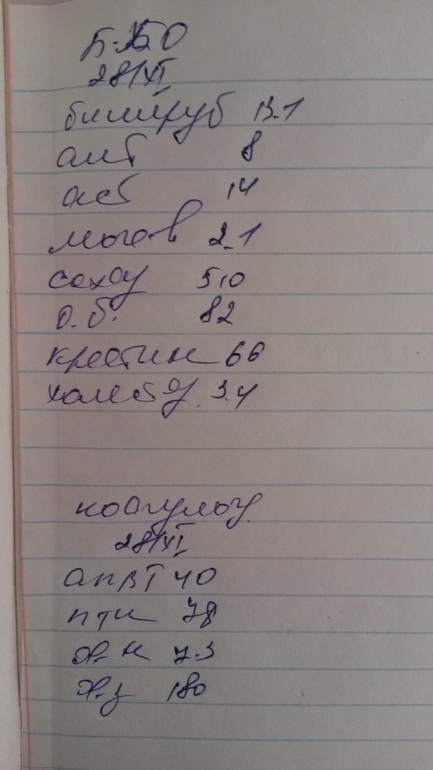 28/XI
билируб 13.1
алт 8
аст 14
мочев 2.1
сахар 5,0
О.б. 82
креатин 66
холест 3.4
коагулог
28/XI
АПВТ 40
пти 78
180